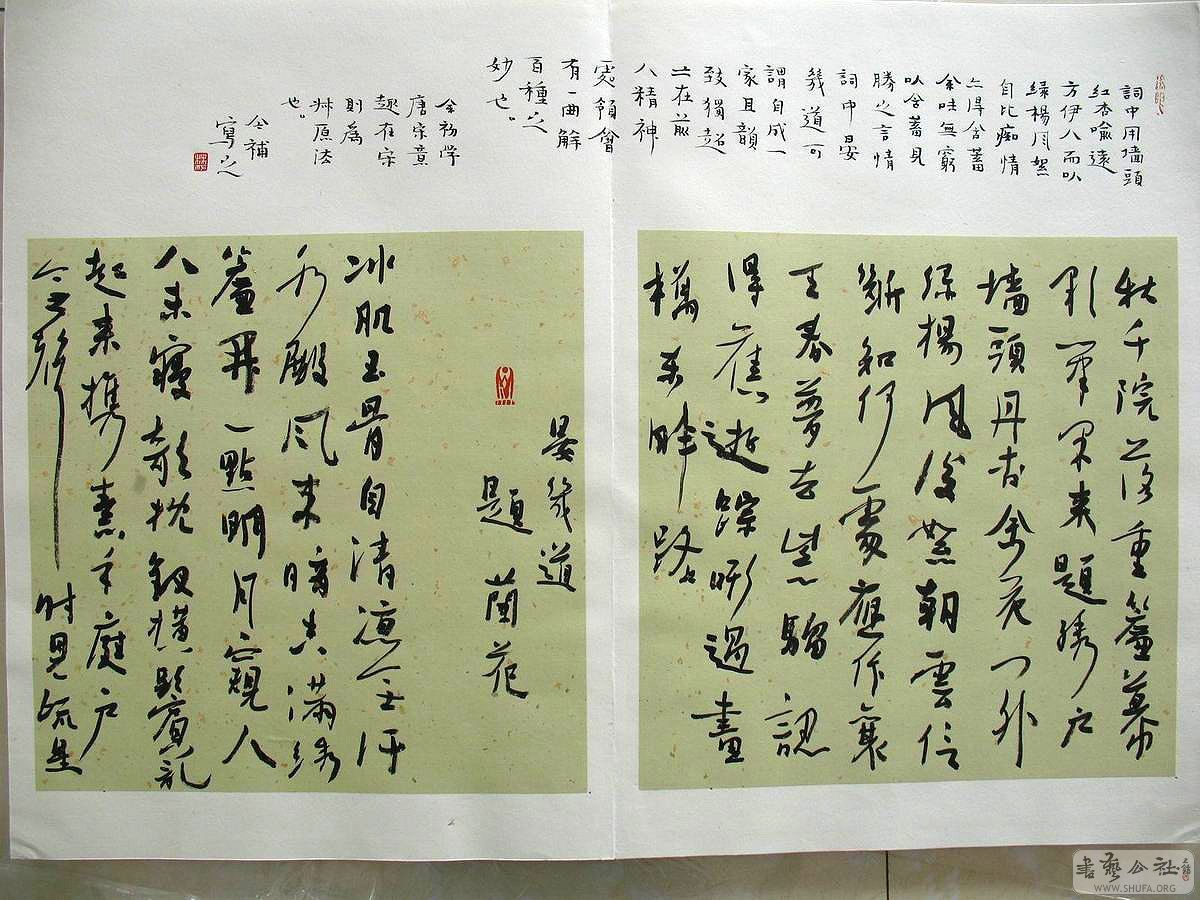 詞中用墻頭
红杏喻遠
方伊人而以
绿楊風絮
自比痴情
亦得含蓄
余味無窮
以含蓄見
勝之言情
詞中晏
幾道可
謂自成一
家且韻
致獨超
亦在前
人精神
處領會
有一曲解
百種之
妙也。
余初學
唐宋意
趣在宋
則爲
草原法
也。
仝補
寫之
秋千院落重簾暮
彩筆閑來題绣户
墙頭丹杏余花门外
绿楊風後絮朝雲信
斷知何處應作襄
王春夢去紫骝認
得舊游踪嘶過畫
橋東畔路
晏幾道
題蘭花
冰肌玉骨自清凉無汗
水殿風來暗香滿绣
簾開一點明月窺人
人未寢欹枕釵横鬢亂
起來携素手庭户
無聲時見疏星
書藝公社
WWW.SHUFA.ORG